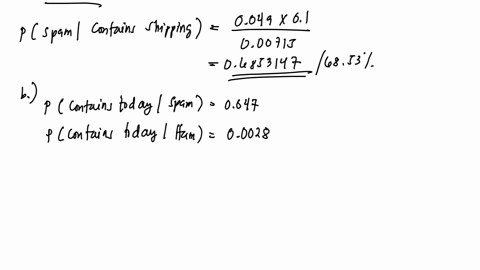 P( spam | contains shipping) = 0.049 x 0.1
0.00715
= 0.6853147 / 68.53%
b.) P( contains today | spam) = 0.047
P( contains today | Ham) = 0.0028